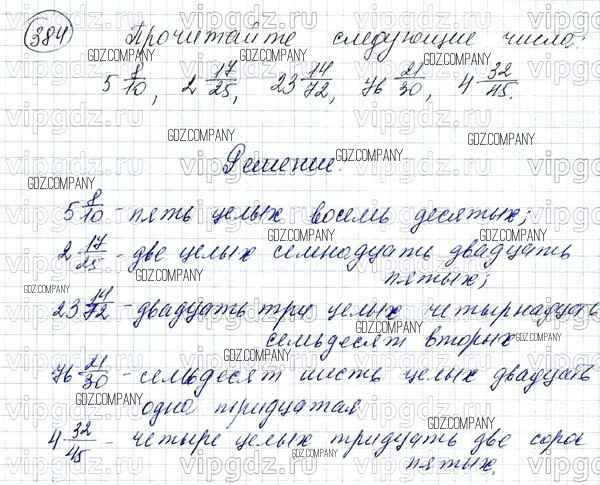 384 Прочитайте следующие числа:
5 8/10, 2 17/25, 23 14/72, 76 21/30, 4 32/45.
Решение.
5 8/10 - пять целых восемь десятых;
2 17/25 - две целых семнадцать двадцать
пятых;
23 14/72 - двадцать три целых четырнадцать
семьдесят вторых
76 21/30 - семьдесят шесть целых двадцать
одна тридцатая
4 32/45 - четыре целых тридцать две сорок
пятых.